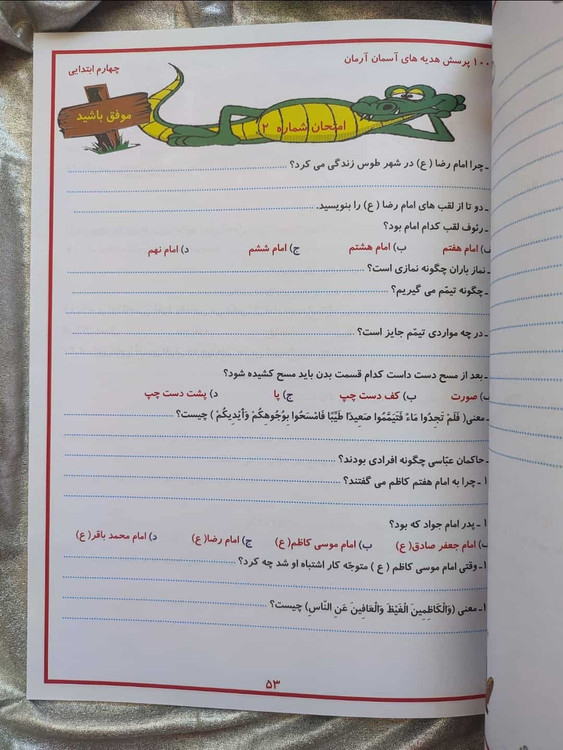 ۱۰۰ پرسش هدیه های آسمان آرمان
چهارم ابتدایی
موفق باشید
امتحان شماره ۲
ـ چرا امام رضا ( ع) در شهر طوس زندگی می کرد؟
ـ دو تا از لقب های امام رضا ( ع) را بنویسید.
ـ رئوف لقب کدام امام بود؟
) امام هفتم ب) امام هشتم ج) امام ششم د) امام نهم
ـ نماز باران چگونه نمازی است؟
ـ چگونه تیمّم می گیریم؟
ـ در چه مواردی تیمّم جایز است؟
ـ بعد از مسح دست داست کدام قسمت بدن باید مسح کشیده شود؟
) صورت ب) کف دست چپ ج) پا د) پشت دست چپ
ـ معنی( فَلَمْ تَجِدُوا مَاءً فَتَیَمَّمُوا صَعِیدًا طَیِّبًا فَامْسَحُوا بِوُجُوهِکُمْ وَأَیْدِیکُمْ ) چیست؟
ـ حاکمان عبّاسی چگونه افرادی بودند؟
۱ ـ چرا به امام هفتم کاظم می گفتند؟
۱ ـ پدر امام جواد که بود؟
) امام جعفر صادق( ع) ب) امام موسی کاظم( ع) ج) امام رضا( ع) د) امام محمد باقر( ع)
۱ ـ وقتی امام موسی کاظم ( ع ) متوجّه کار اشتباه او شد چه کرد؟
۱ ـ معنی (وَالْکَاظِمِینَ الْغَیْظَ وَالْعَافِینَ عَنِ النَّاسِ) چیست؟
۵۳